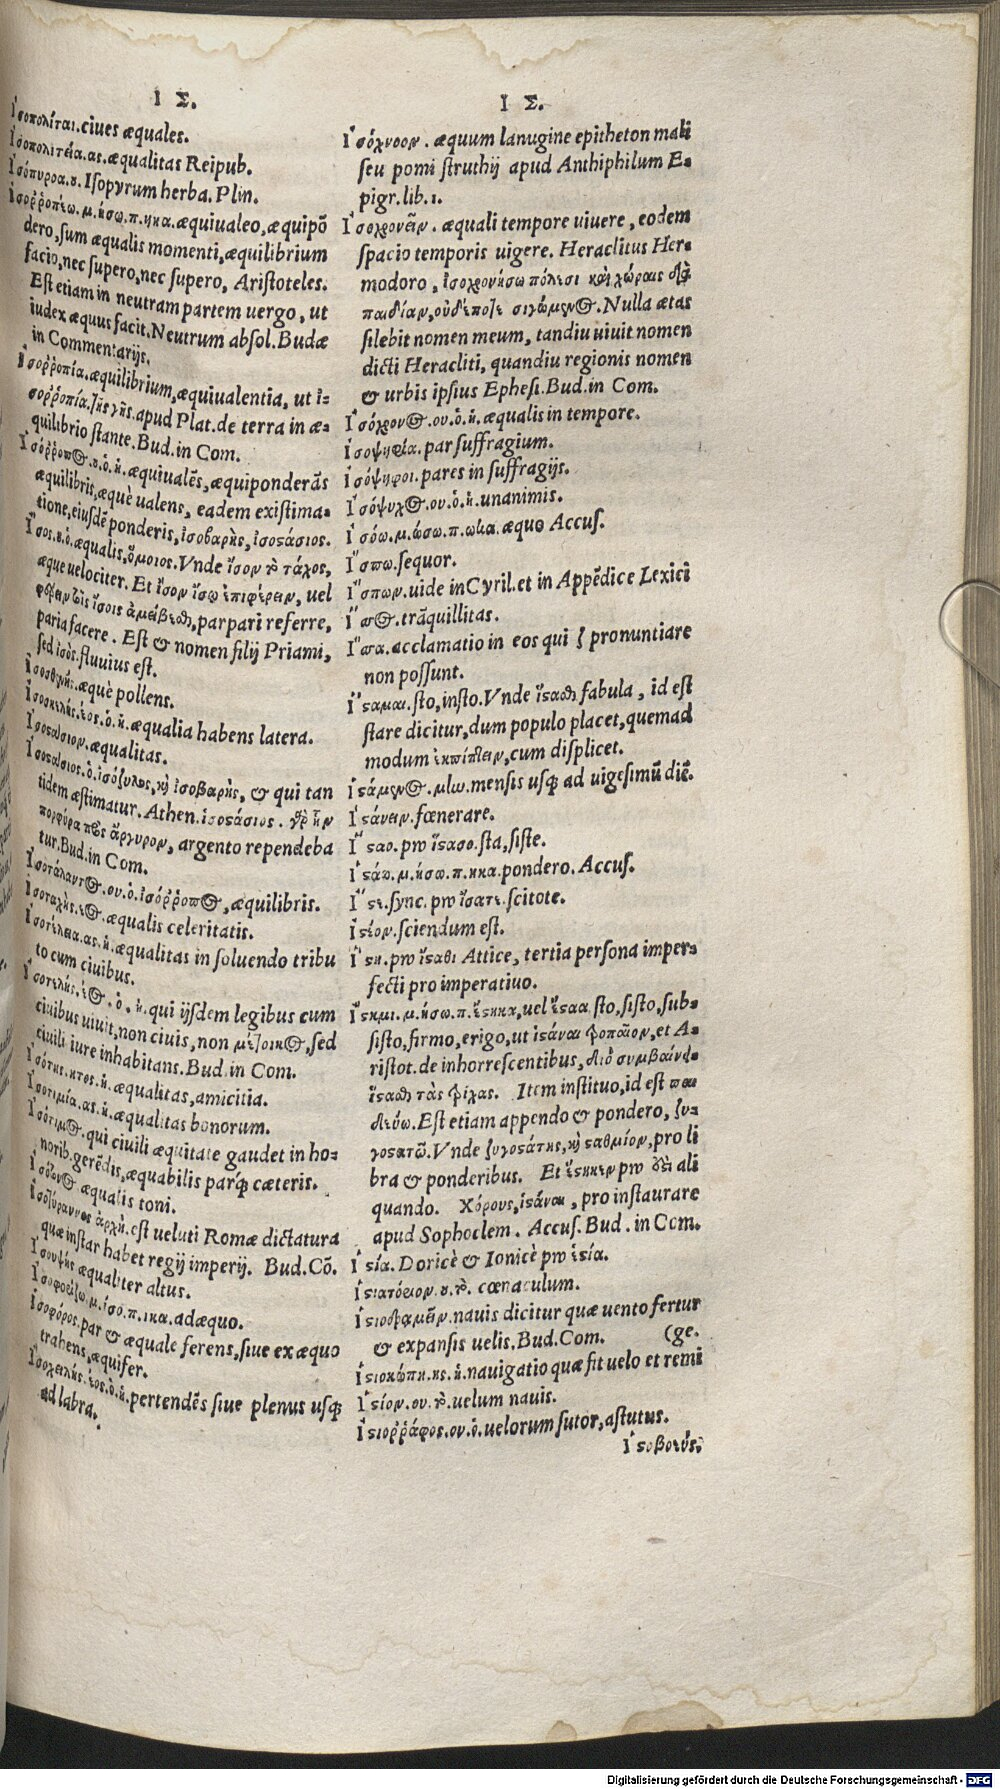 Ι Σ.
Ἰσοπολίται. ciues æquales.
Ἰσοπολιτεία. ας. æqualitas Reipub.
Ἰσόπυροα. ȣ. Isopyrum herba. Plin.
Ἰσορῥοπέω. μ. ήσω. π. ηκα. æquiualeo, æquipõ
dero, sum æqualis momenti, æquilibrium
facio, nec supero, nec supero, Aristoteles.
Est etiam in neutram partem uergo, ut
iudex æquus facit. Neutrum absol. Budæ
in Commentarijs.
Ἰσορῥοπία. æquilibrium, æquiualentia, ut ἰ-
σορῥοπία. τῆς γῆς. apud Plat. de terra in æ-
quilibrio stante. Bud. in Com.
Ἰσόρῥοπος. ȣ. ὁ. ἡ. æquiualẽs, æquiponderãs
æquilibris, æquè ualens, eadem existima-
tione, eiusdẽ ponderis, ἰσοβαρὴς, ἰσοστάσιος.
Ἴσος. ȣ. ὁ. æqualis, ὅμοιος. Vnde ἴσον τὸ τάχος,
æque uelociter. Et ἴσον ἴσω ἐπιφέρειν, uel
τοῖς ἴσοις ἀμείβεσθαι, par pari referre,
paria facere. Est & nomen filij Priami,
sed ἰσὸς. fluuius est.
Ἰσοσθενής. æquè pollens.
Ἰσοσκελής. έος. ὁ. ἡ. æqualia habens latera.
Ἰσοστάσιον. æqualitas.
Ἰσοστάσιος. ὁ. ἰσόζυλος, κὶ ἰσοβαρὴς, & qui tan
tidem æstimatur. Athen. ἰσοστάσιος. γὰρ ἦν
πορφύρα πρὸς ἄργυρον, argento rependeba
tur. Bud. in Com.
Ἰσοτάλαντος. ου. ὁ. ἰσόρῥοπος, æquilibris.
Ἰσοταχὴς. έος. æqualis celeritatis.
Ἰσοτέλεια. ας. ἡ. æqualitas in soluendo tribu
to cum ciuibus.
Ἰσοτελής. έος. ὁ. ἡ. qui ijsdem legibus cum
ciuibus uiuit, non ciuis, non μέτοικος, sed
ciuili iure inhabitans. Bud. in Com.
Ἰσότης. ητος. ἡ. æqualitas, amicitia.
Ἰσοτιμία. ας. ἡ. æqualitas bonorum.
Ἰσότιμος. qui ciuili æquitate gaudet in ho-
norib. gerẽdis, æquabilis parq́ꝫ cæteris.
Ἰσότονος æqualis toni.
Ἰσοτύραννος ἀρχὴ. est ueluti Romæ dictatura
quæ instar habet regij imperij. Bud. Cõ.
Ἰσουψὴς æqualiter altus.
Ἰσοφαρίζω. μ. ίσο. π. ικα. adæquo.
Ἰσοφόρος. par & æquale ferens, siue ex æquo
trahens, æquifer.
Ἰσοχειλής. έος. ὁ. ἡ. pertendẽs siue plenus usq́ꝫ
ad labra.
Ι Σ.
Ἰσόχνοον. æquum lanugine epitheton mali
seu pomi struthij apud Anthiphilum E-
pigr. lib. 1.
Ἰσοχρονεῖν. æquali tempore uiuere, eodem
spacio temporis uigere. Heraclitus Her-
modoro, ἰσοχρονήσω πόλεσι καὶ χώραις διὰ
παιδίαν, οὐδέποτε σιγώμενος. Nulla ætas
silebit nomen meum, tandiu uiuit nomen
dicti Heracliti, quandiu regionis nomen
& urbis ipsius Ephesi. Bud. in Com.
Ἰσόχρονος. ου. ὁ. ἡ. æqualis in tempore.
Ἰσοψηφία. par suffragium.
Ἰσόψηφοι. pares in suffragijs.
Ἰσόψυχος. ου. ὁ. ἡ. unanimis.
Ἰσόω. μ. ώσω. π. ωκα. æquo Accus.
Ἴσπω. sequor.
Ἴσπων. uide in Cyril. et in Appẽdice Lexici
Ἵσπος. trãquillitas.
Ἴσσα. acclamatio in eos qui ζ pronuntiare
non possunt.
Ἵσταμαι. sto, insto. Vnde ἵσταθι fabula, id est
stare dicitur, dum populo placet, quemad
modum ἐκπίπτειν, cum displicet.
Ἱστάμενος. μην. mensis usq́ꝫ ad uigesimũ diẽ.
Ἱστάνειν. fœnerare.
Ἵσταο. pro ἵστασο. sta, siste.
Ἱστάω. μ. ήσω. π. ηκα. pondero. Accus.
Ἴστε. sync. pro ἴσατε. scitote.
Ἰστέον. sciendum est.
Ἵστη. pro ἵσταθι Attice, tertia persona imper-
fecti pro imperatiuo.
Ἵστημι. μ. ήσω. π. ἕστηκα, uel ἕσταα sto, sisto, sub-
sisto, firmo, erigo, ut ἱστάναι τροπαῖον, et A-
ristot. de inhorrescentibus, διὸ συμβαίνει
ἵστασθαι τὰς τρίχας. Item instituo, id est παι
δεύω. Est etiam appendo & pondero, ζυ-
γοστατῶ. Vnde ζυγοστάτης, κὶ σταθμίον, pro li
bra & ponderibus. Et ἕστηκεν pro δεῖ ali
quando. Χόρους, ἱστάναι, pro instaurare
apud Sophoclem. Accus. Bud. in Com.
Ἱστία. Doricè & Ionicè pro ἑστία.
Ἱστιατόριον. ȣ. τὸ. cœnaculum.
Ἱστιοδραμεῖν. nauis dicitur quæ uento fertur
& expansis uelis. Bud. Com. (ge.
Ἱστιοκώπη. ης. ἡ. nauigatio quæ fit uelo et remi
Ἱστίον. ου. τὸ. uelum nauis.
Ἱστιορῥάφος. ου. ὁ. uelorum sutor, astutus.
Ἱστοβοεύς.
Digitalisierung gefördert durch die Deutsche Forschungsgemeinschaft - DFG